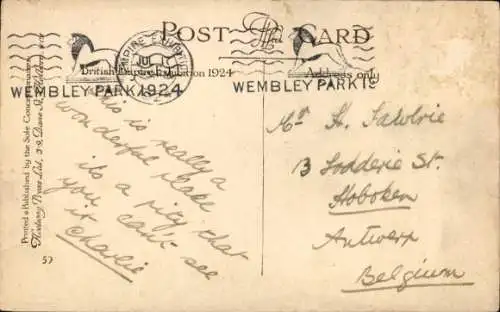 POST CARD
British Empire Exhibition 1924
Address only
WEMBLEY PARK 1924
WEMBLEY PARK 19
This is really a
wonderful place
its a pity that
you cant see
it Charlie
Mr
13 St.
Hoboken
Antwerp
Belgium
Printed & Published by the Sole Concessionaires
Fleetway Press Ltd, 3-9, Dane St., Holborn
57